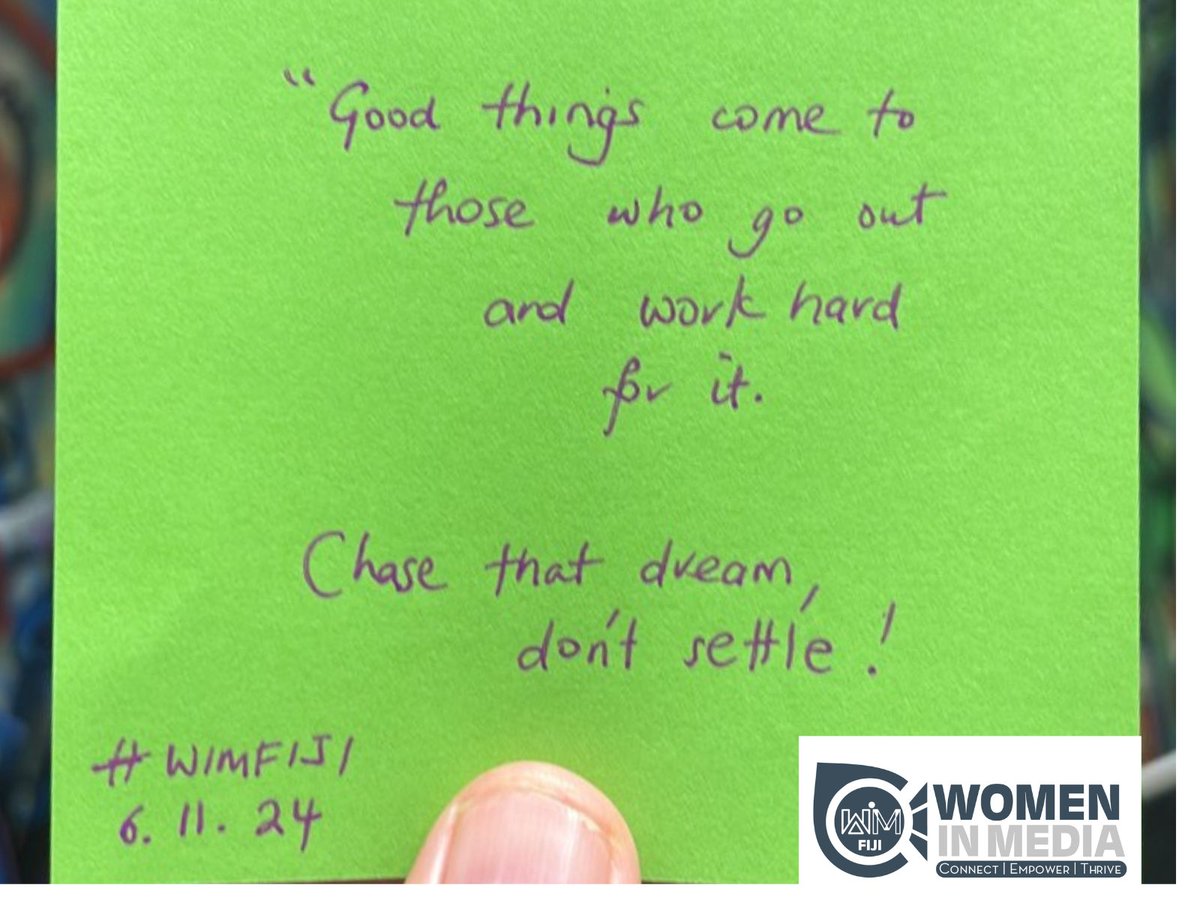 "Good things come to
those who go out
and work hard
for it.
Chase that dream,
don't settle!
#WIMFIJI
6.11.24
WIM
FIJI
WOMEN
IN MEDIA
CONNECT | EMPOWER | THRIVE